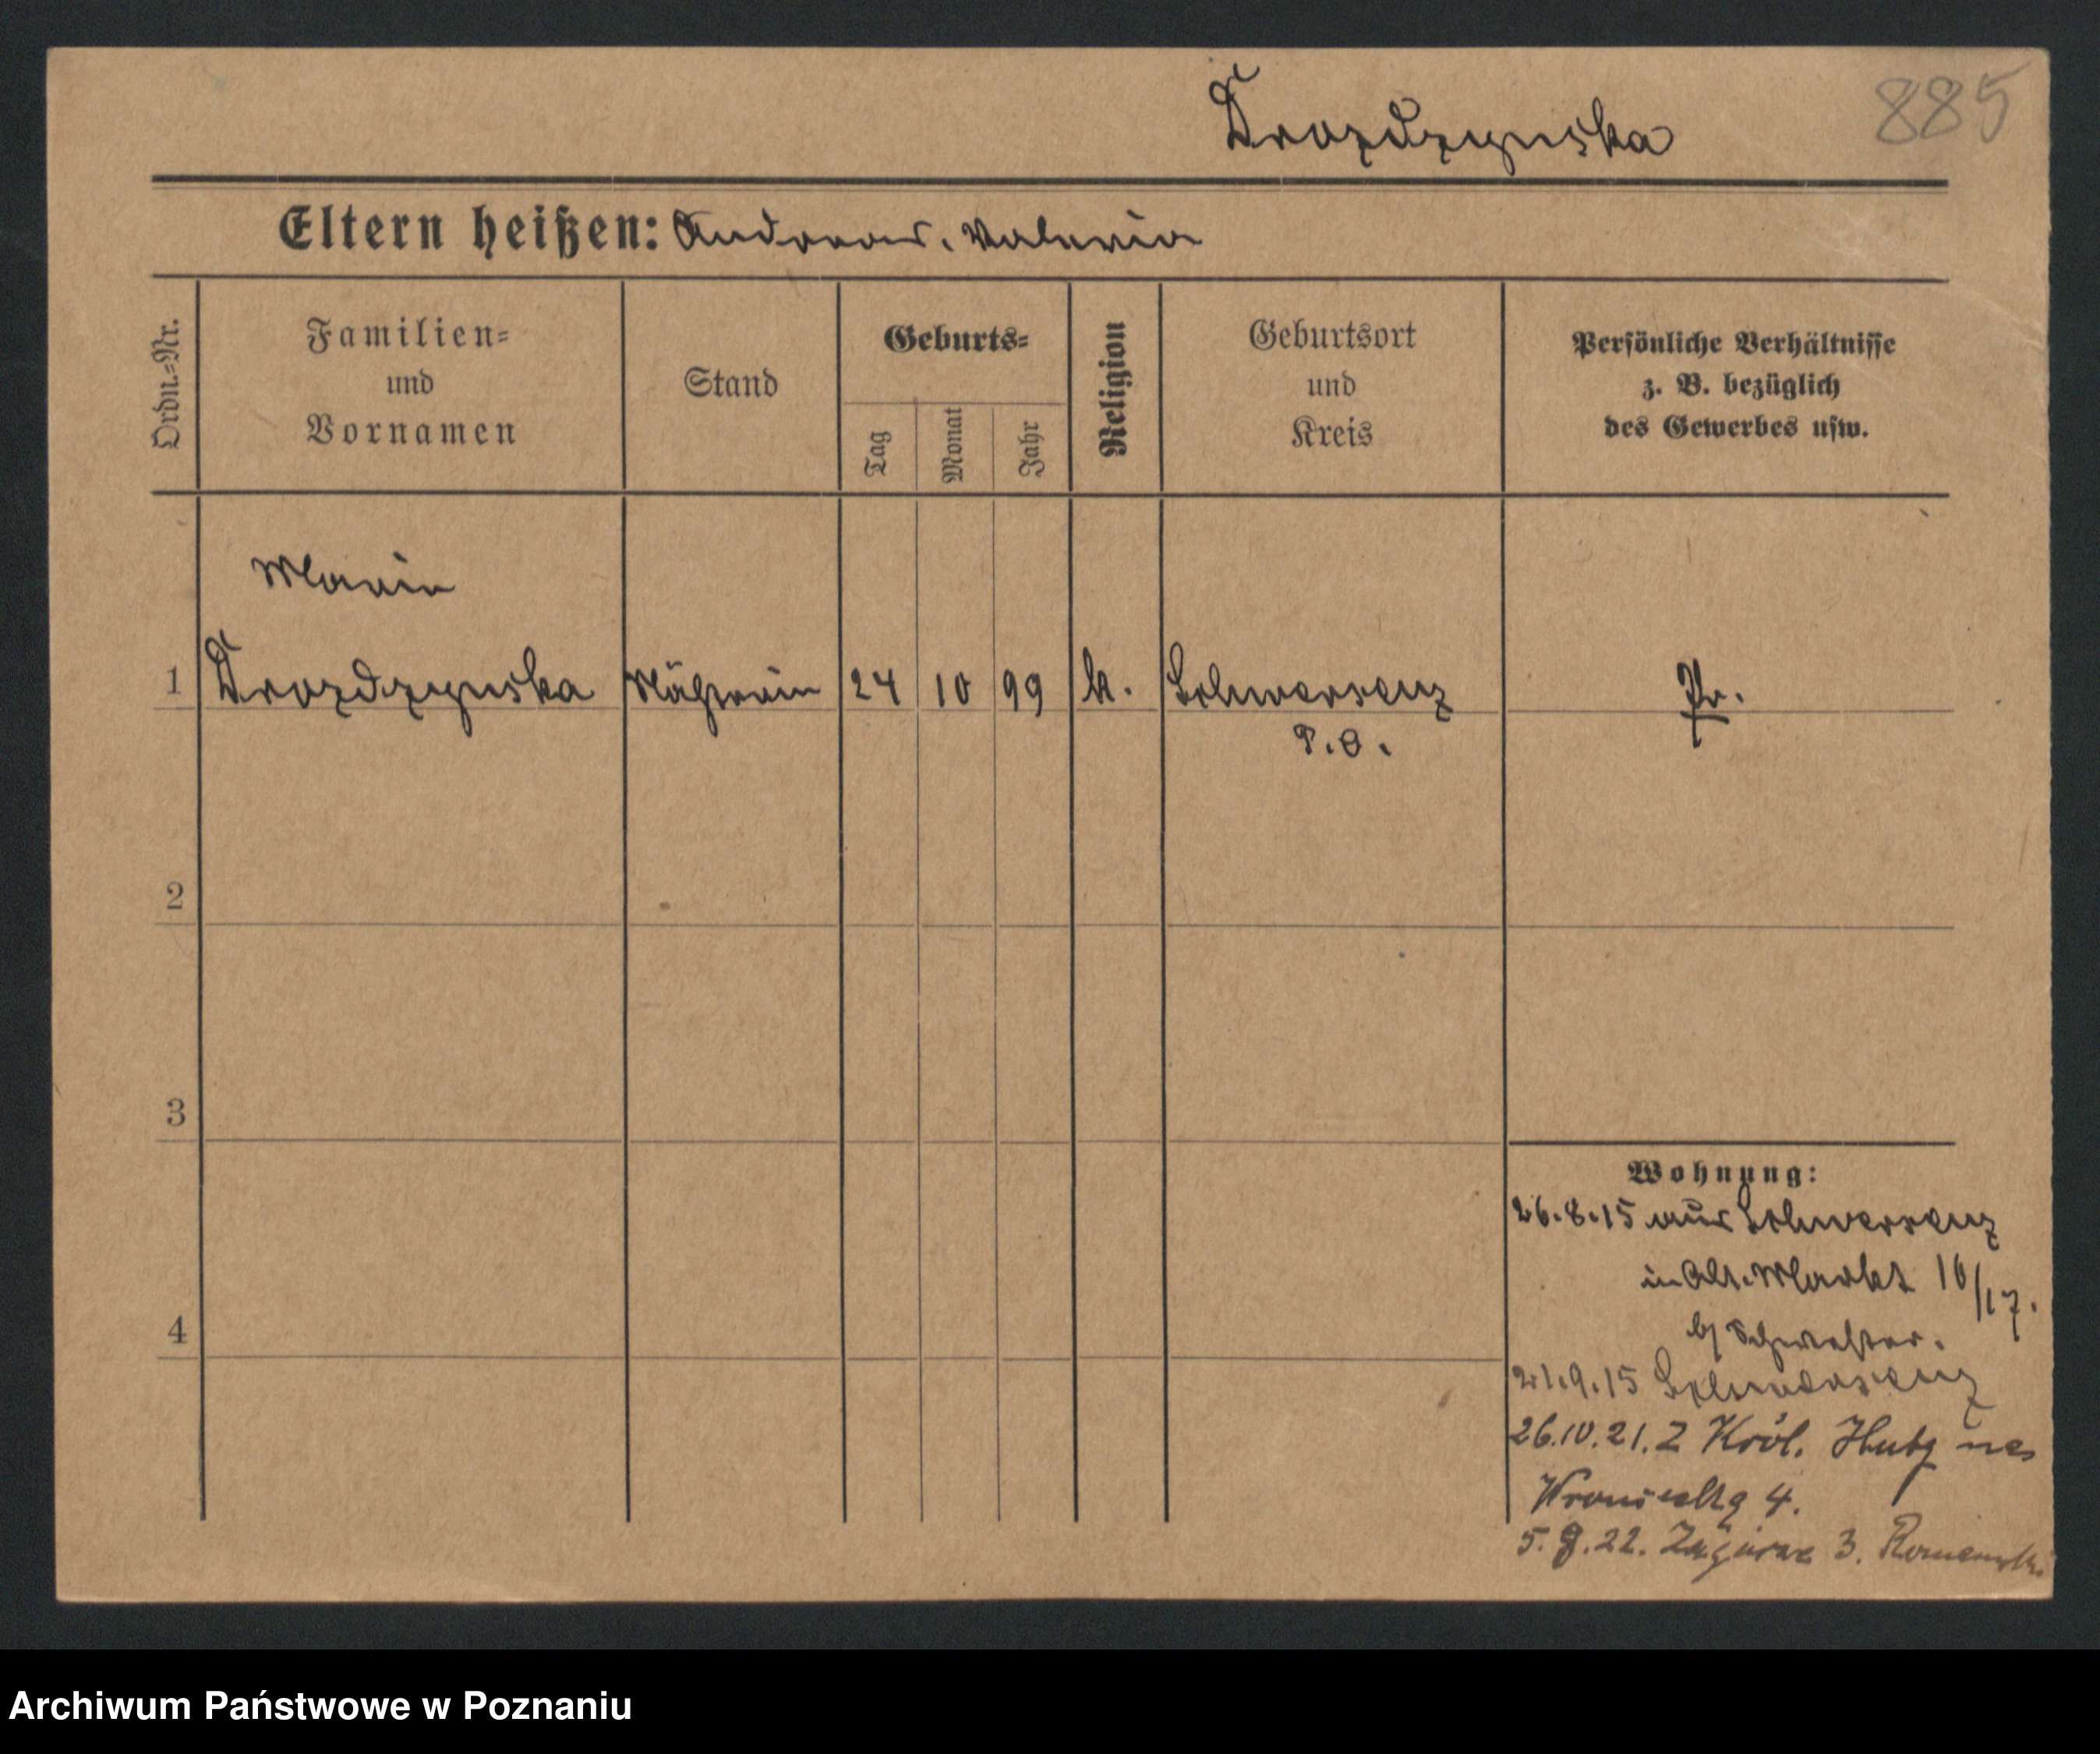 Drozdzynska 885
Eltern heißen: Andreas. Valeria
Ordn.-Nr.
Familien-
und
Vornamen
Stand
Geburts-
Tag
Monat
Jahr
Religion
Geburtsort
und
Kreis
Persönliche Verhältnisse
z. B. bezüglich
des Gewerbes usw.
Maria
1 Drozdzynska Näherin 24 10 99 k. Schwersenz Pr.
P.O.
2
3
4
Wohnung:
26.8.15 aus Schwersenz
in Alt. Markt 16/17.
b/ Schwester.
21.9.15 Schwersenz
26.10.21. Z Król. Huty
4.
5. 22. Zagórze 3.
Archiwum Państwowe w Poznaniu